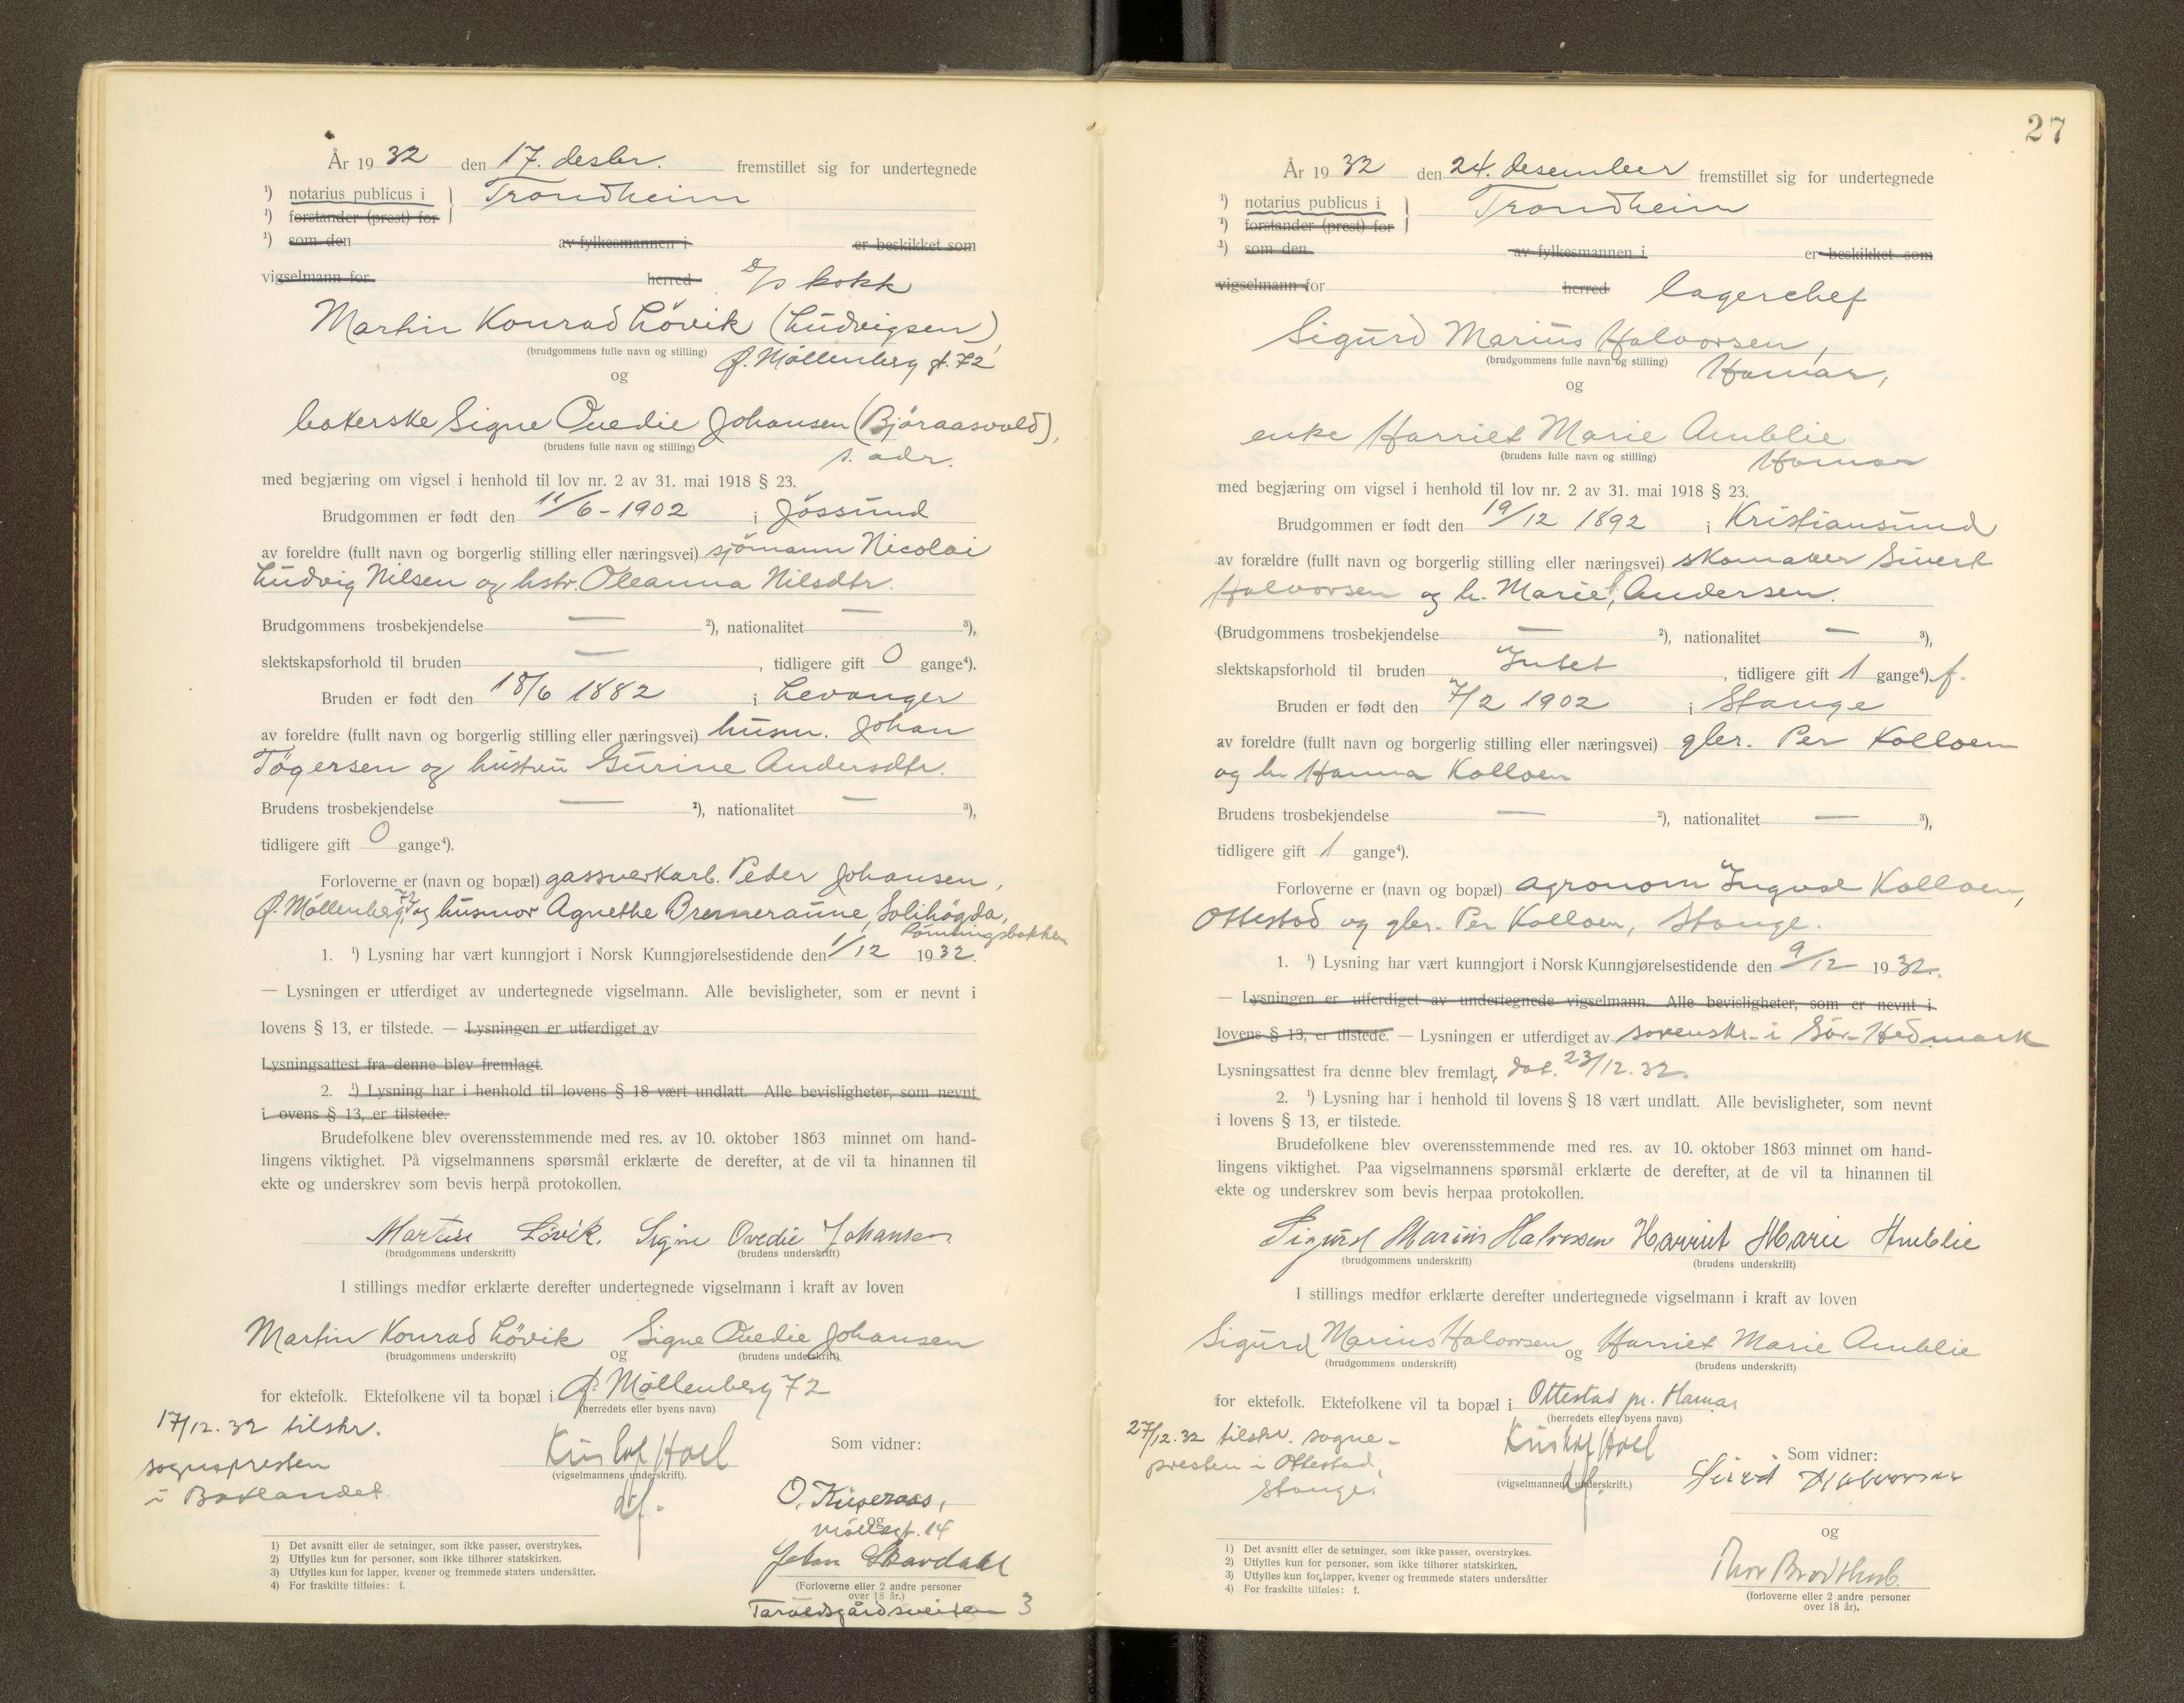 År 1932 den 17. desbr. fremstillet sig for undertegnede
¹) notarius publicus i } Trondheim
¹) forstander (prest) for
¹) som den av fylkesmannen i er beskikket som
vigselmann for herred D/S kokk
Martin Konrad Lövik (Ludvigsen),
(brudgommens fulle navn og stilling) Ø. Möllenberg gt. 72
og
bakerske Signe Ovedie Johansen (Björaasvold),
(brudens fulle navn og stilling) s. adr.
med begjæring om vigsel i henhold til lov nr. 2 av 31. mai 1918 § 23.
Brudgommen er født den 11/6 - 1902 i Jössund
av foreldre (fullt navn og borgerlig stilling eller næringsvei) sjömann Nicolai
Ludvig Nilsen og hstr. Oleanna Nilsdtr.
Brudgommens trosbekjendelse — ²), nationalitet — ³),
slektskapsforhold til bruden — , tidligere gift 0 gange⁴).
Bruden er født den 18/6 1882 i Levanger
av foreldre (fullt navn og borgerlig stilling eller næringsvei) husm. Johan
Tögersen og hustru Gurine Andersdtr.
Brudens trosbekjendelse — ²), nationalitet — ³),
tidligere gift 0 gange⁴).
Forloverne er (navn og bopæl) gassverkarb. Peder Johansen,
Ø. Möllenberg 72 og husmor Agnethe Bremeraune, Solihögda,
1. ¹) Lysning har vært kunngjort i Norsk Kunngjørelsestidende den 1/12 1932.
— Lysningen er utferdiget av undertegnede vigselmann. Alle bevisligheter, som er nevnt i
lovens § 13, er tilstede. — Lysningen er utferdiget av
Lysningsattest fra denne blev fremlagt.
2. ¹) Lysning har i henhold til lovens § 18 vært undlatt. Alle bevisligheter, som nevnt
i ovens § 13, er tilstede.
Brudefolkene blev overensstemmende med res. av 10. oktober 1863 minnet om hand-
lingens viktighet. På vigselmannens spørsmål erklærte de derefter, at de vil ta hinannen til
ekte og underskrev som bevis herpå protokollen.
Martin Lövik. Signe Ovedie Johansen
(brudgommens underskrift) (brudens underskrift)
I stillings medfør erklærte derefter undertegnede vigselmann i kraft av loven
Martin Konrad Lövik og Signe Ovedie Johansen
(brudgommens underskrift) (brudens underskrift)
for ektefolk. Ektefolkene vil ta bopæl i Ø. Möllenberg 72
(herredets eller byens navn)
17/12.32 tilskr.
sognepresten
i Baklandet.
(vigselmannens underskrift).
Som vidner:
og
Möllegt. 14
John Skavdahl
(Forloverne eller 2 andre personer
over 18 år.)
Taraldsgårdsveiten 3
1) Det avsnitt eller de setninger, som ikke passer, overstrykes.
2) Utfylles kun for personer, som ikke tilhører statskirken.
3) Utfylles kun for lapper, kvener og fremmede staters undersåtter.
4) For fraskilte tilføies: f.
27
År 1932 den 24. desember fremstillet sig for undertegnede
¹) notarius publicus i } Trondheim
¹) forstander (prest) for
¹) som den av fylkesmannen i er beskikket som
vigselmann for herred lagerchef
Sigurd Marius Halvorsen,
(brudgommens fulle navn og stilling) Hamar,
og
enke Harriet Marie Amblie
(brudens fulle navn og stilling) Hamar
med begjæring om vigsel i henhold til lov nr. 2 av 31. mai 1918 § 23.
Brudgommen er født den 19/12 1892 i Kristiansund
av forældre (fullt navn og borgerlig stilling eller næringsvei) skomaker Sivert
Halvorsen og h. Marie, f. Andersen.
(Brudgommens trosbekjendelse — ²), nationalitet — ³),
slektskapsforhold til bruden Intet , tidligere gift 1 gange⁴) f.
Bruden er født den 7/2 1902 i Stange
av foreldre (fullt navn og borgerlig stilling eller næringsvei) gbr. Per Kolloen
og h. Hanna Kolloen
Brudens trosbekjendelse — ²), nationalitet — ³),
tidligere gift 1 gange⁴).
Forloverne er (navn og bopæl) agronom Ingval Kolloen,
Ottestad og gbr. Per Kolloen, Stange.
1. ¹) Lysning har vært kunngjort i Norsk Kunngjørelsestidende den 9/12 1932.
— Lysningen er utferdiget av undertegnede vigselmann. Alle bevisligheter, som er nevnt i
lovens § 13, er tilstede. — Lysningen er utferdiget av sorenskr. i Sör-Hedmark
Lysningsattest fra denne blev fremlagt, dat. 23/12.32.
2. ¹) Lysning har i henhold til lovens § 18 vært undlatt. Alle bevisligheter, som nevnt
i lovens § 13, er tilstede.
Brudefolkene blev overensstemmende med res. av 10. oktober 1863 minnet om hand-
lingens viktighet. Paa vigselmannens spørsmål erklærte de derefter, at de vil ta hinannen til
ekte og underskrev som bevis herpaa protokollen.
Sigurd Marius Halvorsen Harriet Marie Amblie
(brudgommens underskrift) (brudens underskrift)
I stillings medfør erklærte derefter undertegnede vigselmann i kraft av loven
Sigurd Marius Halvorsen og Harriet Marie Amblie
(brudgommens underskrift) (brudens underskrift)
for ektefolk. Ektefolkene vil ta bopæl i Ottestad pr. Hamar
(herredets eller byens navn)
27/12.32 tilskr. sogne-
presten i Ottestad,
Stange.
(vigselmannens underskrift.)
Som vidner:
Halvorsen
og
(forloverne eller 2 andre personer
over 18 år).
1) Det avsnitt eller de setninger, som ikke passer, overstrykes.
2) Utfylles kun for personer, som ikke tilhører statskirken.
3) Utfylles kun for lapper, kvener og fremmede staters undersåtter
4) For fraskilte tilføies: f.